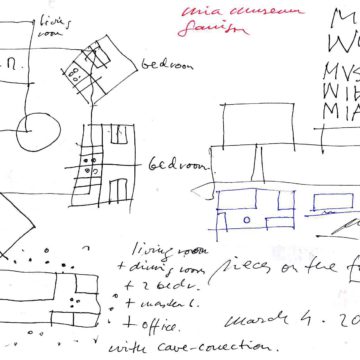 living
room
mia museum
bedroom
bedroom
MUS
WIE
MIA
living room
+ dining room
+ 2 bedr.
+ master b.
+ office.
with cave-conection.
pieces on the
march 4. 20